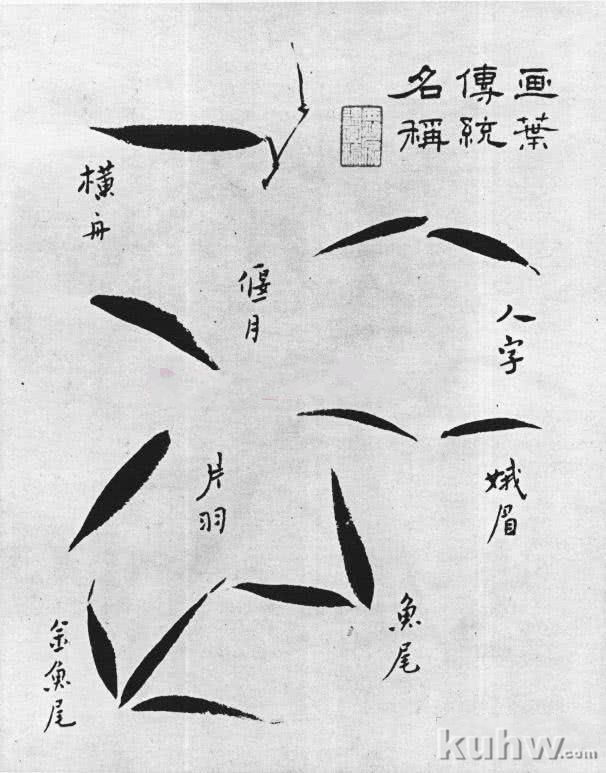 画葉
傳統
名稱
橫舟
偃月
人字
片羽
娥眉
魚尾
金魚尾
kuhw.com